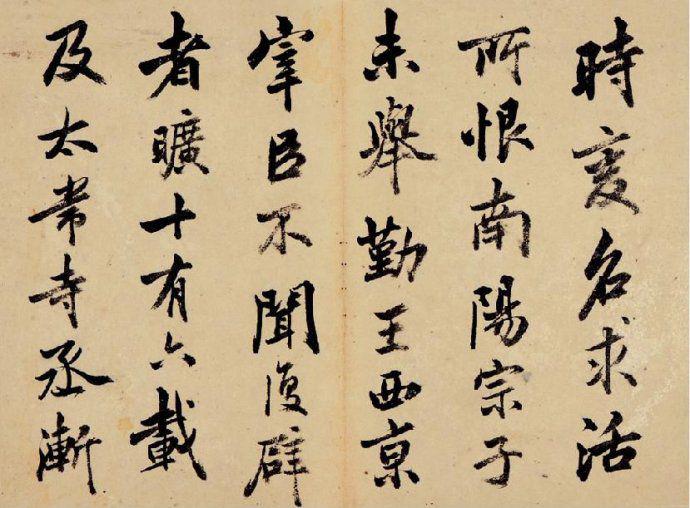 時變名求活
所恨南陽宗子
未舉勤王西京
宰臣不聞復辟
者曠十有六載
及太常寺丞漸